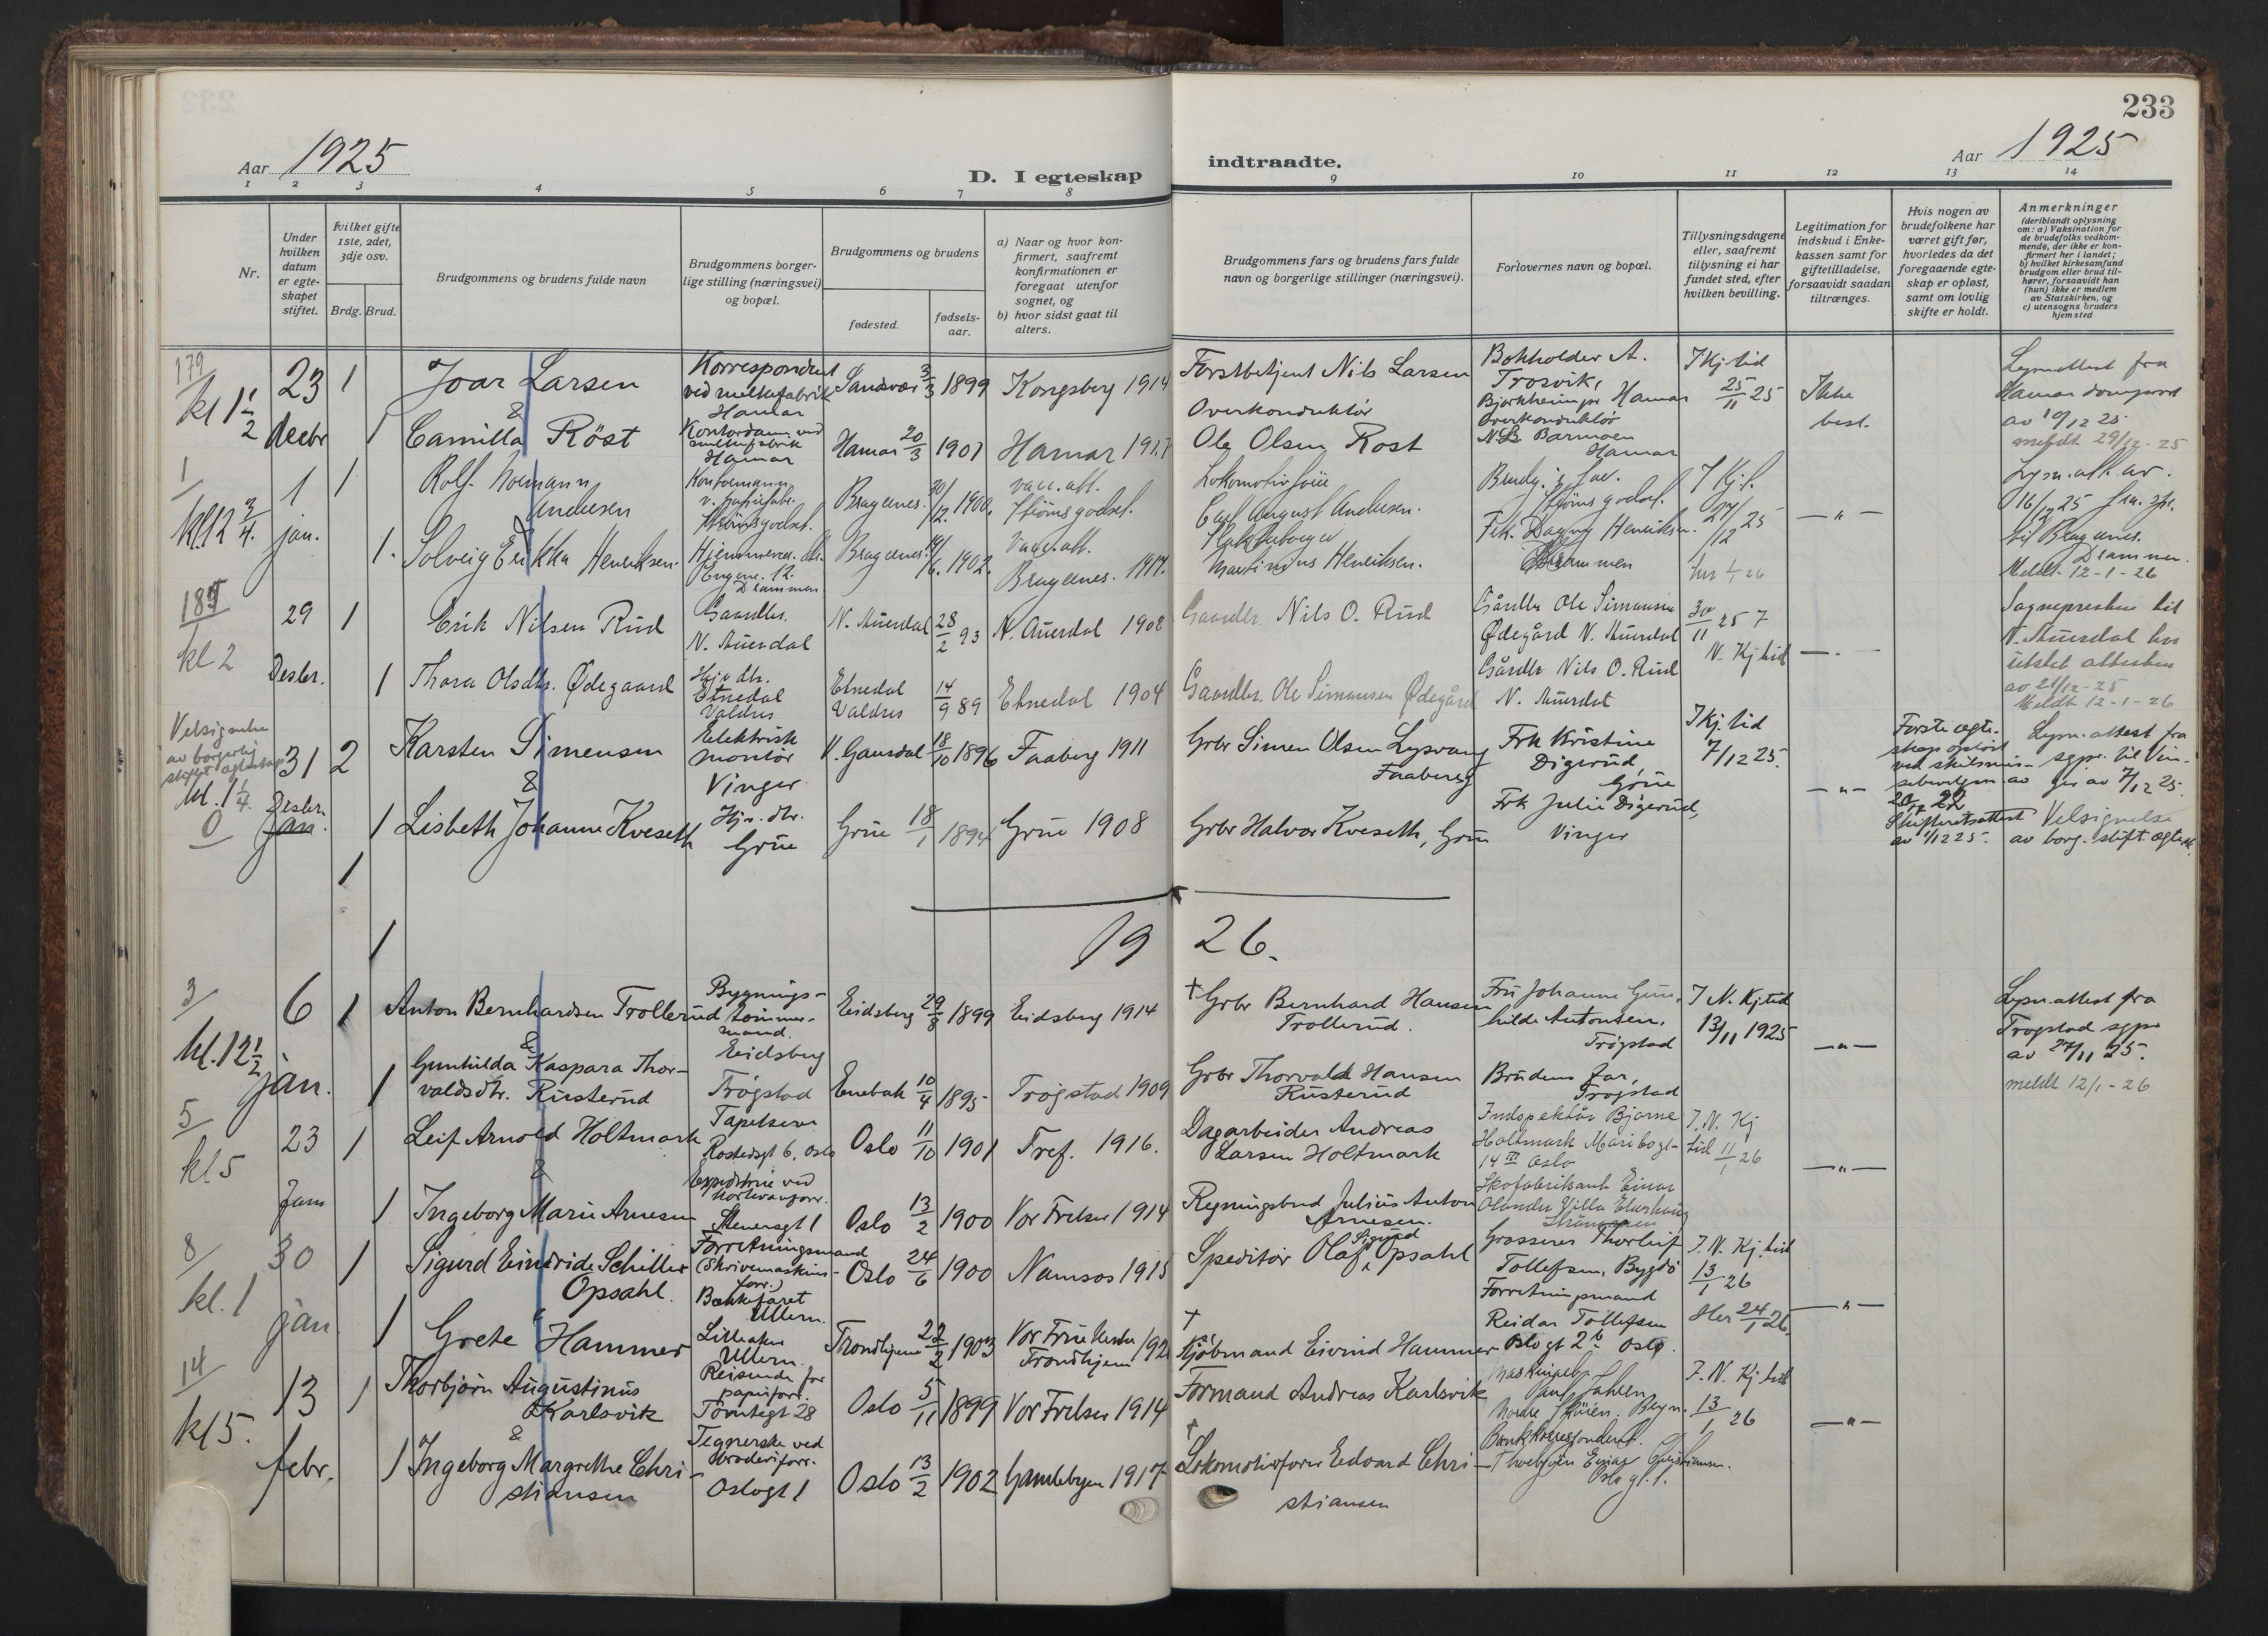 233
Aar 1925
D. I egteskap
indtraadte.
Aar 1925
1 2 3 4 5 6 7 8 9 10 11 12 13 14
Nr.
Under hvilken datum er egteskapet stiftet.
hvilket gifte 1ste, 2det, 3dje osv.
Brdg. Brud.
Brudgommens og brudens fulde navn
Brudgommens borgerlige stilling (næringsvei) og bopæl.
Brudgommens og brudens
fødested.
fødselsaar.
a) Naar og hvor konfirmert, saafremt konfirmationen er foregaat utenfor sognet, og
b) hvor sidst gaat til alters.
Brudgommens fars og brudens fars fulde navn og borgerlige stillinger (næringsvei).
Forlovernes navn og bopæl.
Tillysningsdagene eller, saafremt tillysning ei har fundet sted, efter hvilken bevilling.
Legitimation for indskud i Enkekassen samt for giftetilladelse, forsaavidt saadan tiltrænges.
Hvis nogen av brudefolkene har været gift før, hvorledes da det foregaaende egteskap er opløst, samt om lovlig skifte er holdt.
Anmerkninger
(deriblandt oplysning om: a) Vaksination for de brudefolks vedkommende, der ikke er konfirmert her i landet; b) hvilket kirkesamfund brudgom eller brud tilhører, forsaavidt han (hun) ikke er medlem av Statskirken, og c) utensogns bruders hjemsted
179 kl 1 1/2
23 decbr 1
Joar Larsen
&
Korrespondent ved melkefabrik Hamar
Sandsvær 3/3 1899
Kongsberg 1914
Forstbetjent Nils Larsen
Bokholder A. Trosvik, Bjerkheimgt Hamar
I Kj. tid 25/11 25
Ikke best.
Lysn. attest fra Hamar domprost av 19/12 25
meldt 29/12-25
1 Camilla Röst
Kontordame ved melkefabrik Hamar
Hamar 20/3 1901
Hamar 1917
Overkonduktör Ole Olsen Rost
Overkonduktör Barmoen Hamar
1 kl. 12 3/4.
1 jan. 1
Rolf Andresen
&
Strömsgodset.
Bragernes 30/12. 1900.
vacc. att. Strömsgodset.
Carl August Andresen.
Brudg. far. Strömsgodset.
I Kj. t. 27/12 25
— " —
Lysn. att. av 16/12 25 fra spr. til Bragernes. Drammen.
Meldt 12-1-26
1. Solveig Erikka Henriksen.
Hjemmevær. dtr. Engene. 12. Drammen
Bragernes. 1902.
Vacc. att. Bragernes. 1917.
Martinius Henriksen.
Frk. Dagny Henriksen. Drammen
kl 2
29 Desbr. 1
Erik Nilsen Rud
Gaardbr. N. Aurdal
N. Aurdal 28/2 93
N. Aurdal 1908
Gaardbr. Nils O. Rud
Gårdbr Ole Simensen Ødegård N. Aurdal
30/11 25 7 N. Kj tid
— " —
Sogneprest til N. Aurdal har utstet attesten av 21/12-25
Meldt 12-1-26
1 Thora Olsdtr. Ødegaard
Hjv. dtr. Etnedal Valdres
Etnedal Valdres 14/9 89
Etnedal 1904
Gaardbr. Ole Simensen Ødegård
Gårdbr Nils O. Rud N. Aurdal
Velsignelse av borgerlig stiftet egteskap
kl. 1 1/4.
0
31 Desbr. Jan. 2
Karsten Simensen
&
Elektrisk montör Vinger
V. Gausdal 18/10 1896
Faaberg 1911
Grbr Simen Olsen Lysvang Faaberg
Frk Kristine Digerud, Grue
I Kj. tid 7/12 25.
— " —
Første egteskap opløst ved skilsmissebevilgn. av 22
Skifteretsattest av 1/12 25.
Lysn. attest fra sgpr. til Vinger av 7/12 25.
Velsignelse av borg. stift. egtesk.
1 Lisbeth Johanne Kveseth
Hjv. dtr. Grue
Grue 18/1 1894
Grue 1908
Grbr Halvor Kveseth, Grue
Frk Julie Digerud, Vinger
1
1
1926.
3 kl. 12 1/2
6 jan. 1
Anton Bernhardsen Trollerud
&
Bygningstømmermand. Eidsberg
Eidsberg 29/8 1899
Eidsberg 1914
† Grbr Bernhard Hansen Trollerud.
Fru Johanne Gunhilde Antonsen, Trögstad
I N. Kj tid 13/11 1925
— " —
Lysn. attest fra Trögstad sgpr av 27/11 25.
meldt 12/1-26
1 Gunhilda Kaspara Thorvaldsdtr. Rusterud
Trögstad
Enebak 10/4 1895
Trögstad 1909
Grbr Thorvald Hansen Rusterud
Brudens far, Trögstad
5 kl 5
23 Jan 1
Leif Arnold Holtmark
&
Tapetserer Rostedsgt 6, Oslo
Oslo 11/10 1901
Tref. 1916.
Dagarbeider Andreas Larsen Holtmark
Inspektör Bjarne Holtmark Maribogt- 14 III Oslo
I. N. Kj tid 11/1 26
— " —
1 Ingeborg Marie Arnesen
Stenersgt 1
Oslo 13/2 1900
Vor Frelser 1914
Regningsbud Julius Anton Arnesen.
Skofabrikant Einar Olander Villa
8 kl. 1
30 jan. 1
Sigurd Eindride Schiller Opsahl.
&
Forretningsmand (Skrivemaskinforr.) Bækkefaret Ullern.
Oslo 24/6 1900
Namsos 1915
Speditör Olaf Sigurd Opsahl
Grosserer Thorleif Tollefsen, Bygdö
I. N. Kj. tid 13/1 26
Her 24/1 26.
— " —
1 Grete Hammer
Lilleaker Ullern.
Trondhjem 22/2 1903
Vor Frue kirke Trondhjem
† Kjöbmand Eivind Hammer
Forretningsmand Reidar Tollefsen Oslogt 2 b Oslo.
14 kl 5.
13 febr. 1
Thorbjörn Augustinus Karlsvik
&
Reisende for papirforr. Tomtegt 28
Oslo 5/11 1899
Vor Frelser 1914
Formand Andreas Karlsvik
I. N. Kj tid 13/1 26
— " —
1 Ingeborg Margrethe Christiansen
Tegnerske ved broderiforr. Oslogt 1
Oslo 13/2 1902
Gamlebyen 1917
† Lokomotivförer Edvard Christiansen
Bankkorrespondent. Thorbjörn Einar Christiansen. Oslogt. 1.